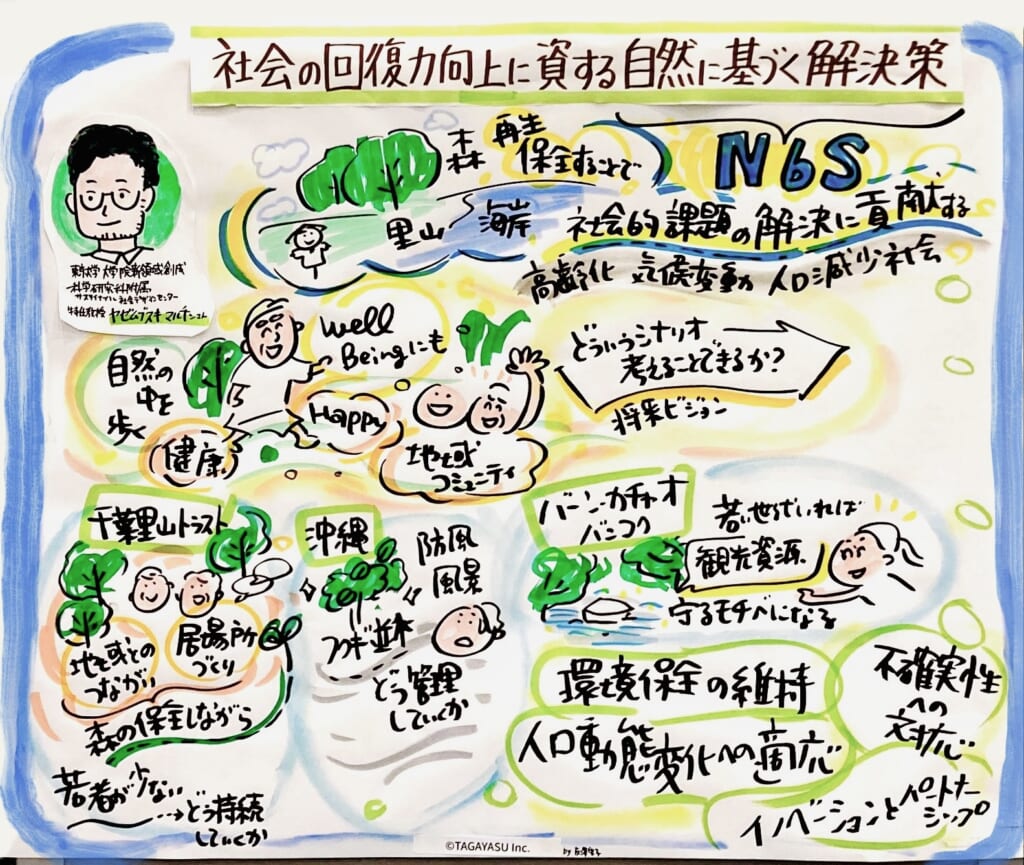 社会の回復力向上に資する自然に基づく解決策
森 再生
保全することで
NbS
里山 海岸
社会的課題の解決に貢献する
高齢化 気候変動 人口減少社会
東京大学大学院新領域創成
科学研究科附属
サステイナブル社会デザインセンター
特任教授 ヤゼムブスキ マルチン
自然の
中を
歩く
健康
well
Beingにも
Happy
地域
コミュニティ
どういうシナリオ
考えることできるか?
将来ビジョン
千葉里山トラスト
地域との
つながり
居場所
づくり
森の保全しながら
若者が少ない
→どう持続
していくか
沖縄
防風
風景
フクギ並木
どう管理
していくか
バーン・カチャオ
バンコク
若い世代いれば
観光資源
守るモチベになる
環境保全の維持
人口動態変化への適応
不確実性
への
対応
イノベーションとパートナー
シップ
©TAGAYASU Inc.